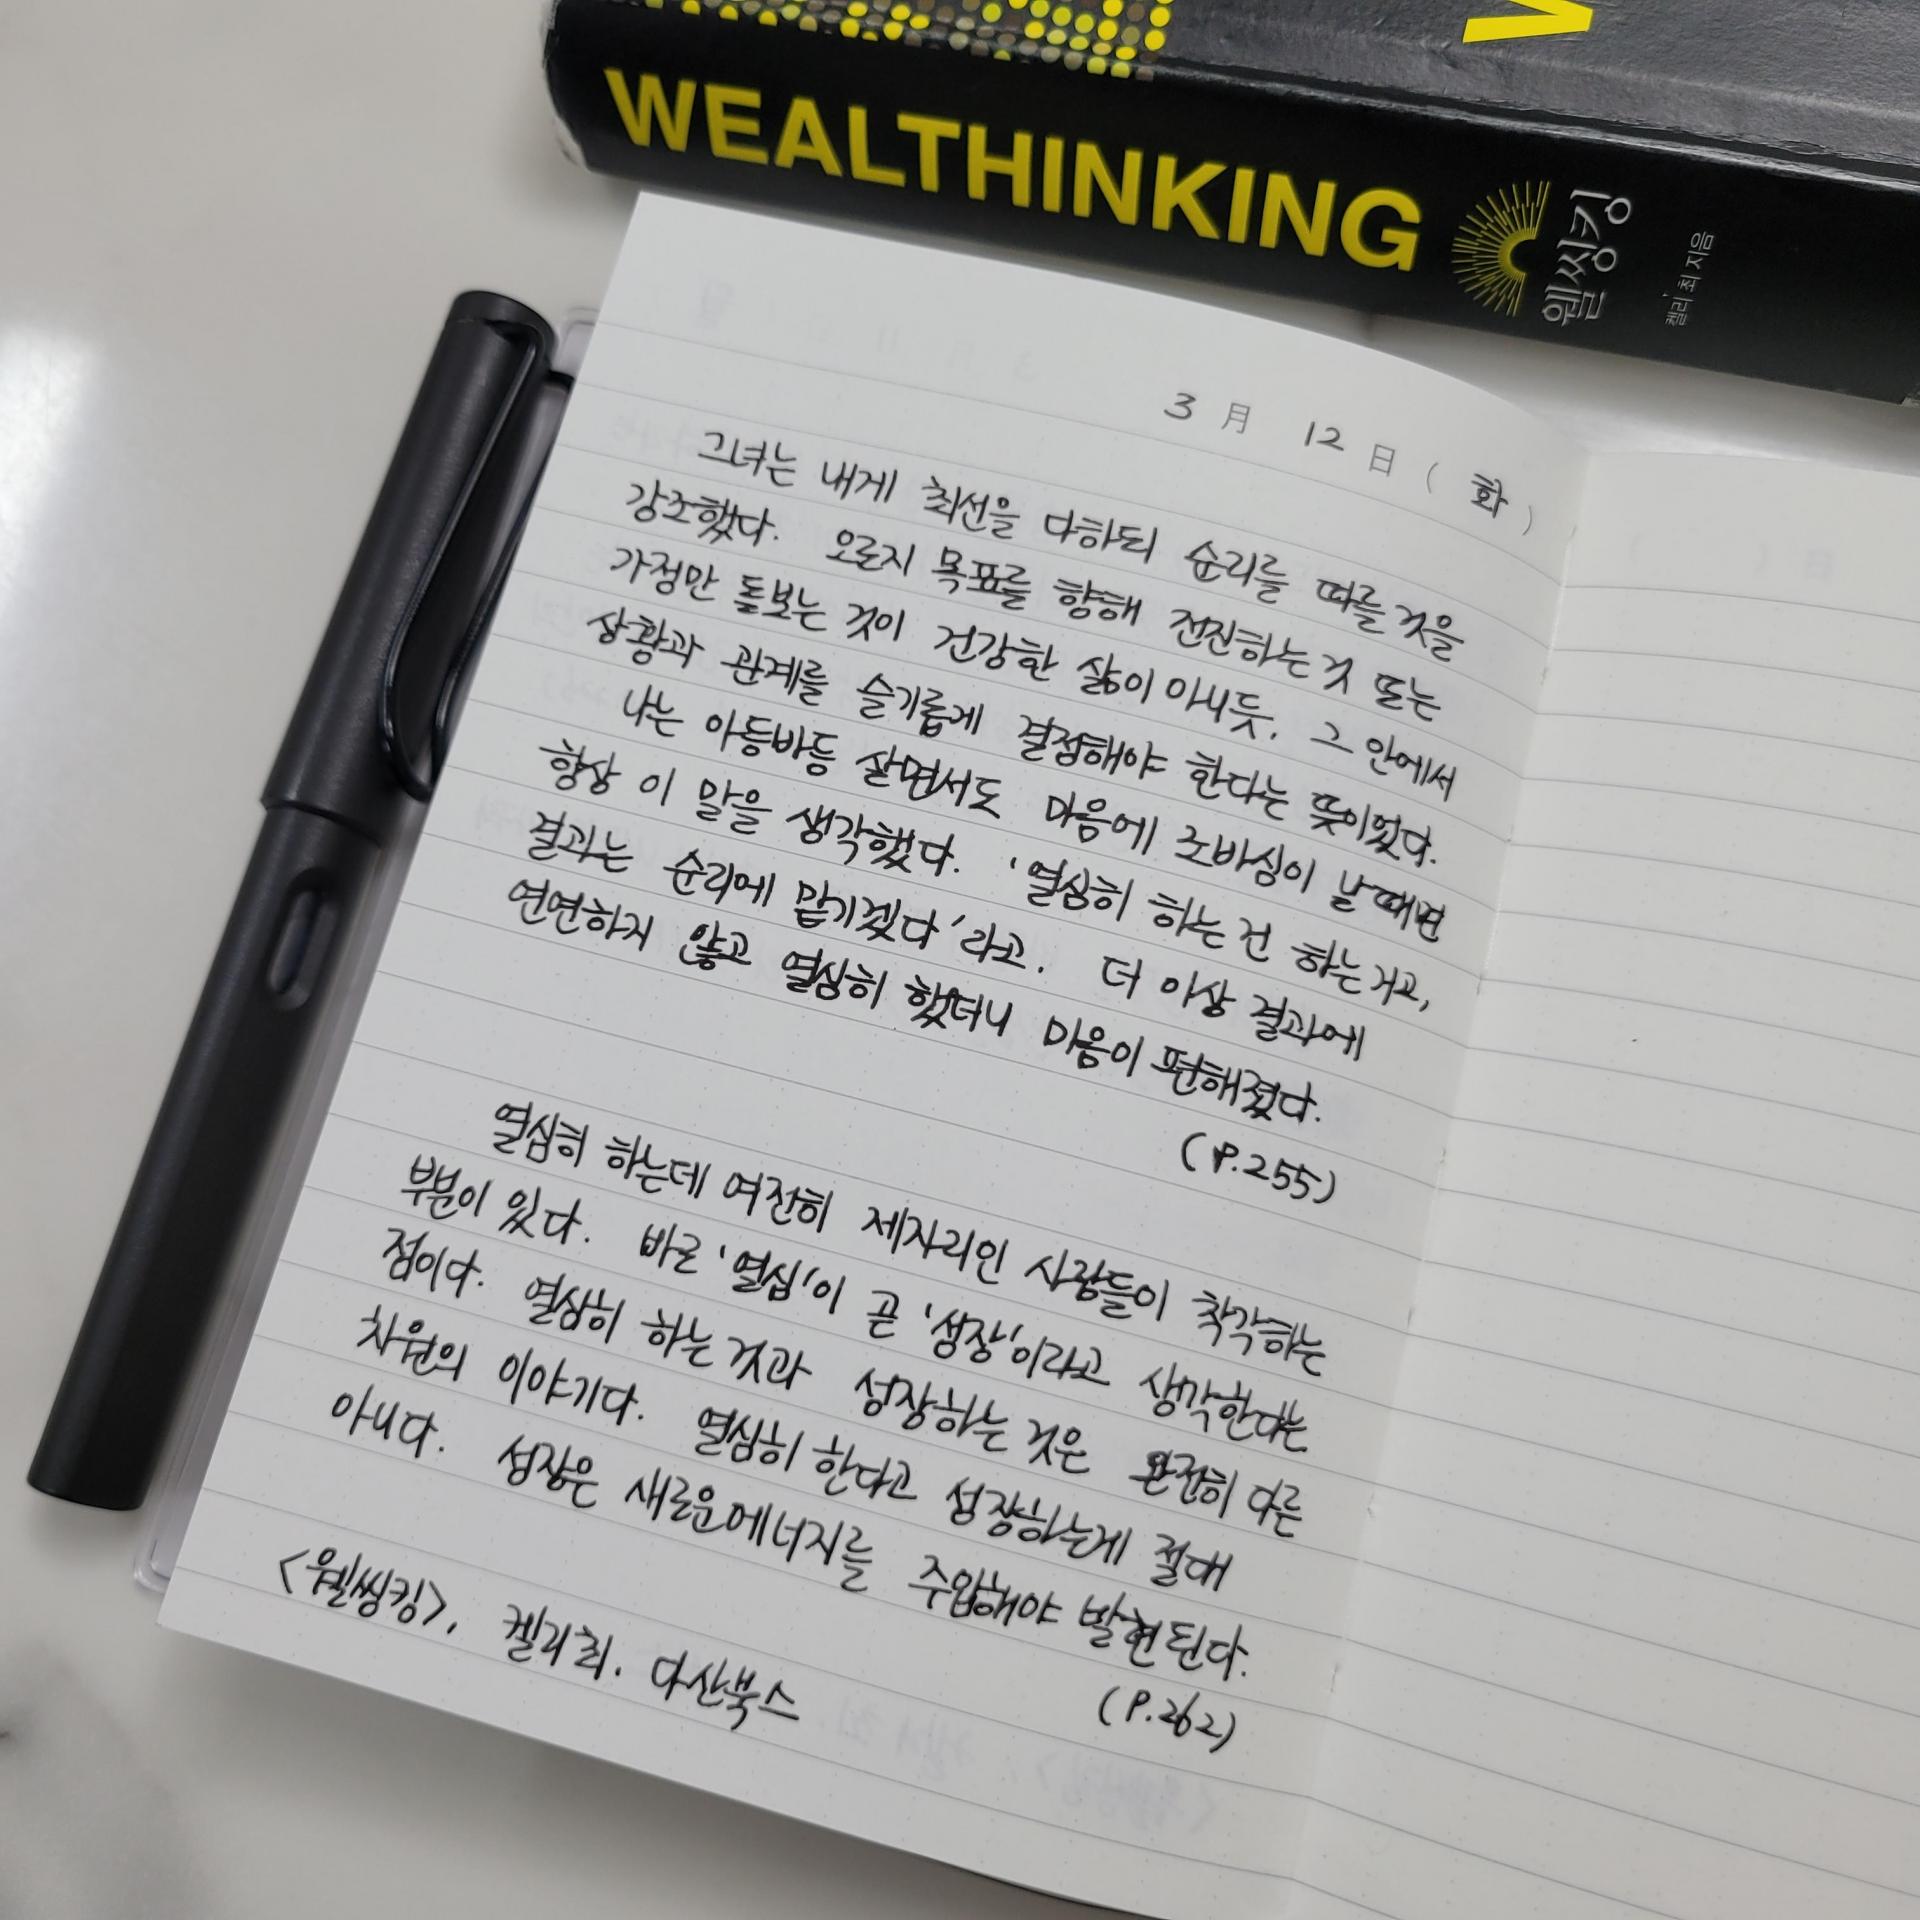 WEALTHINKING
웰씽킹
켈리 최 지음
3 月 12 日 ( 화 )
그녀는 내게 최선을 다하되 순리를 따를 것을
강조했다. 오로지 목표를 향해 전진하는 것 또는
가정만 돌보는 것이 건강한 삶이 아니듯, 그 안에서
상황과 관계를 슬기롭게 결정해야 한다는 뜻이었다.
나는 아등바등 살면서도 마음에 조바심이 날때면
항상 이 말을 생각했다. '열심히 하는 건 하는 거고,
결과는 순리에 맡기겠다'라고. 더 이상 결과에
연연하지 않고 열심히 했더니 마음이 편해졌다.
(P.255)
열심히 하는데 여전히 제자리인 사람들이 착각하는
부분이 있다. 바로 '열심'이 곧 '성장'이라고 생각한다는
점이다. 열심히 하는 것과 성장하는 것은 완전히 다른
차원의 이야기다. 열심히 한다고 성장하는게 절대
아니다. 성장은 새로운에너지를 주입해야 발현된다.
(P.262)
<웰씽킹>, 켈리최. 다산북스